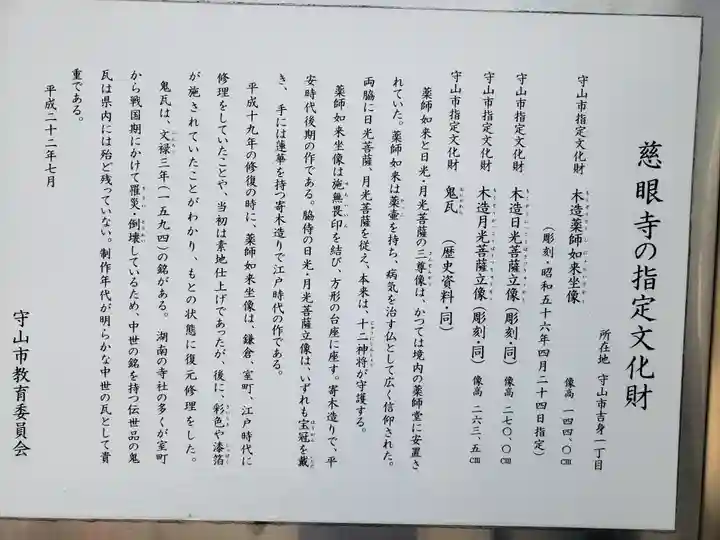 慈眼寺の指定文化財
所在地 守山市吉身一丁目
守山市指定文化財 木造薬師如来坐像 像高 一四四、〇㎝
(彫刻・昭和五十六年四月二十四日指定)
守山市指定文化財 木造日光菩薩立像(彫刻・同) 像高 二七〇、〇㎝
守山市指定文化財 木造月光菩薩立像(彫刻・同) 像高 二六三、五㎝
守山市指定文化財 鬼瓦 (歴史資料・同)
薬師如来と日光・月光菩薩の三尊像は、かつては境内の薬師堂に安置さ
れていた。薬師如来は薬壷を持ち、病気を治す仏として広く信仰された。
両脇に日光菩薩、月光菩薩を従え、本来は、十二神将が守護する。
薬師如来坐像は施無畏印を結び、方形の台座に座す。寄木造りで、平
安時代後期の作である。脇侍の日光・月光菩薩立像は、いずれも宝冠を戴
き、手には蓮華を持つ寄木造りで江戸時代の作である。
平成十九年の修復の時に、薬師如来坐像は、鎌倉、室町、江戸時代に
修理をしていたことや、当初は素地仕上げであったが、後に、彩色や漆箔
が施されていたことがわかり、もとの状態に復元修理をした。
鬼瓦は、文禄三年(一五九四)の銘がある。 湖南の寺社の多くが室町
から戦国期にかけて罹災・倒壊しているため、中世の銘を持つ伝世品の鬼
瓦は県内には殆ど残っていない。制作年代が明らかな中世の瓦として貴
重である。
平成二十二年七月
守山市教育委員会